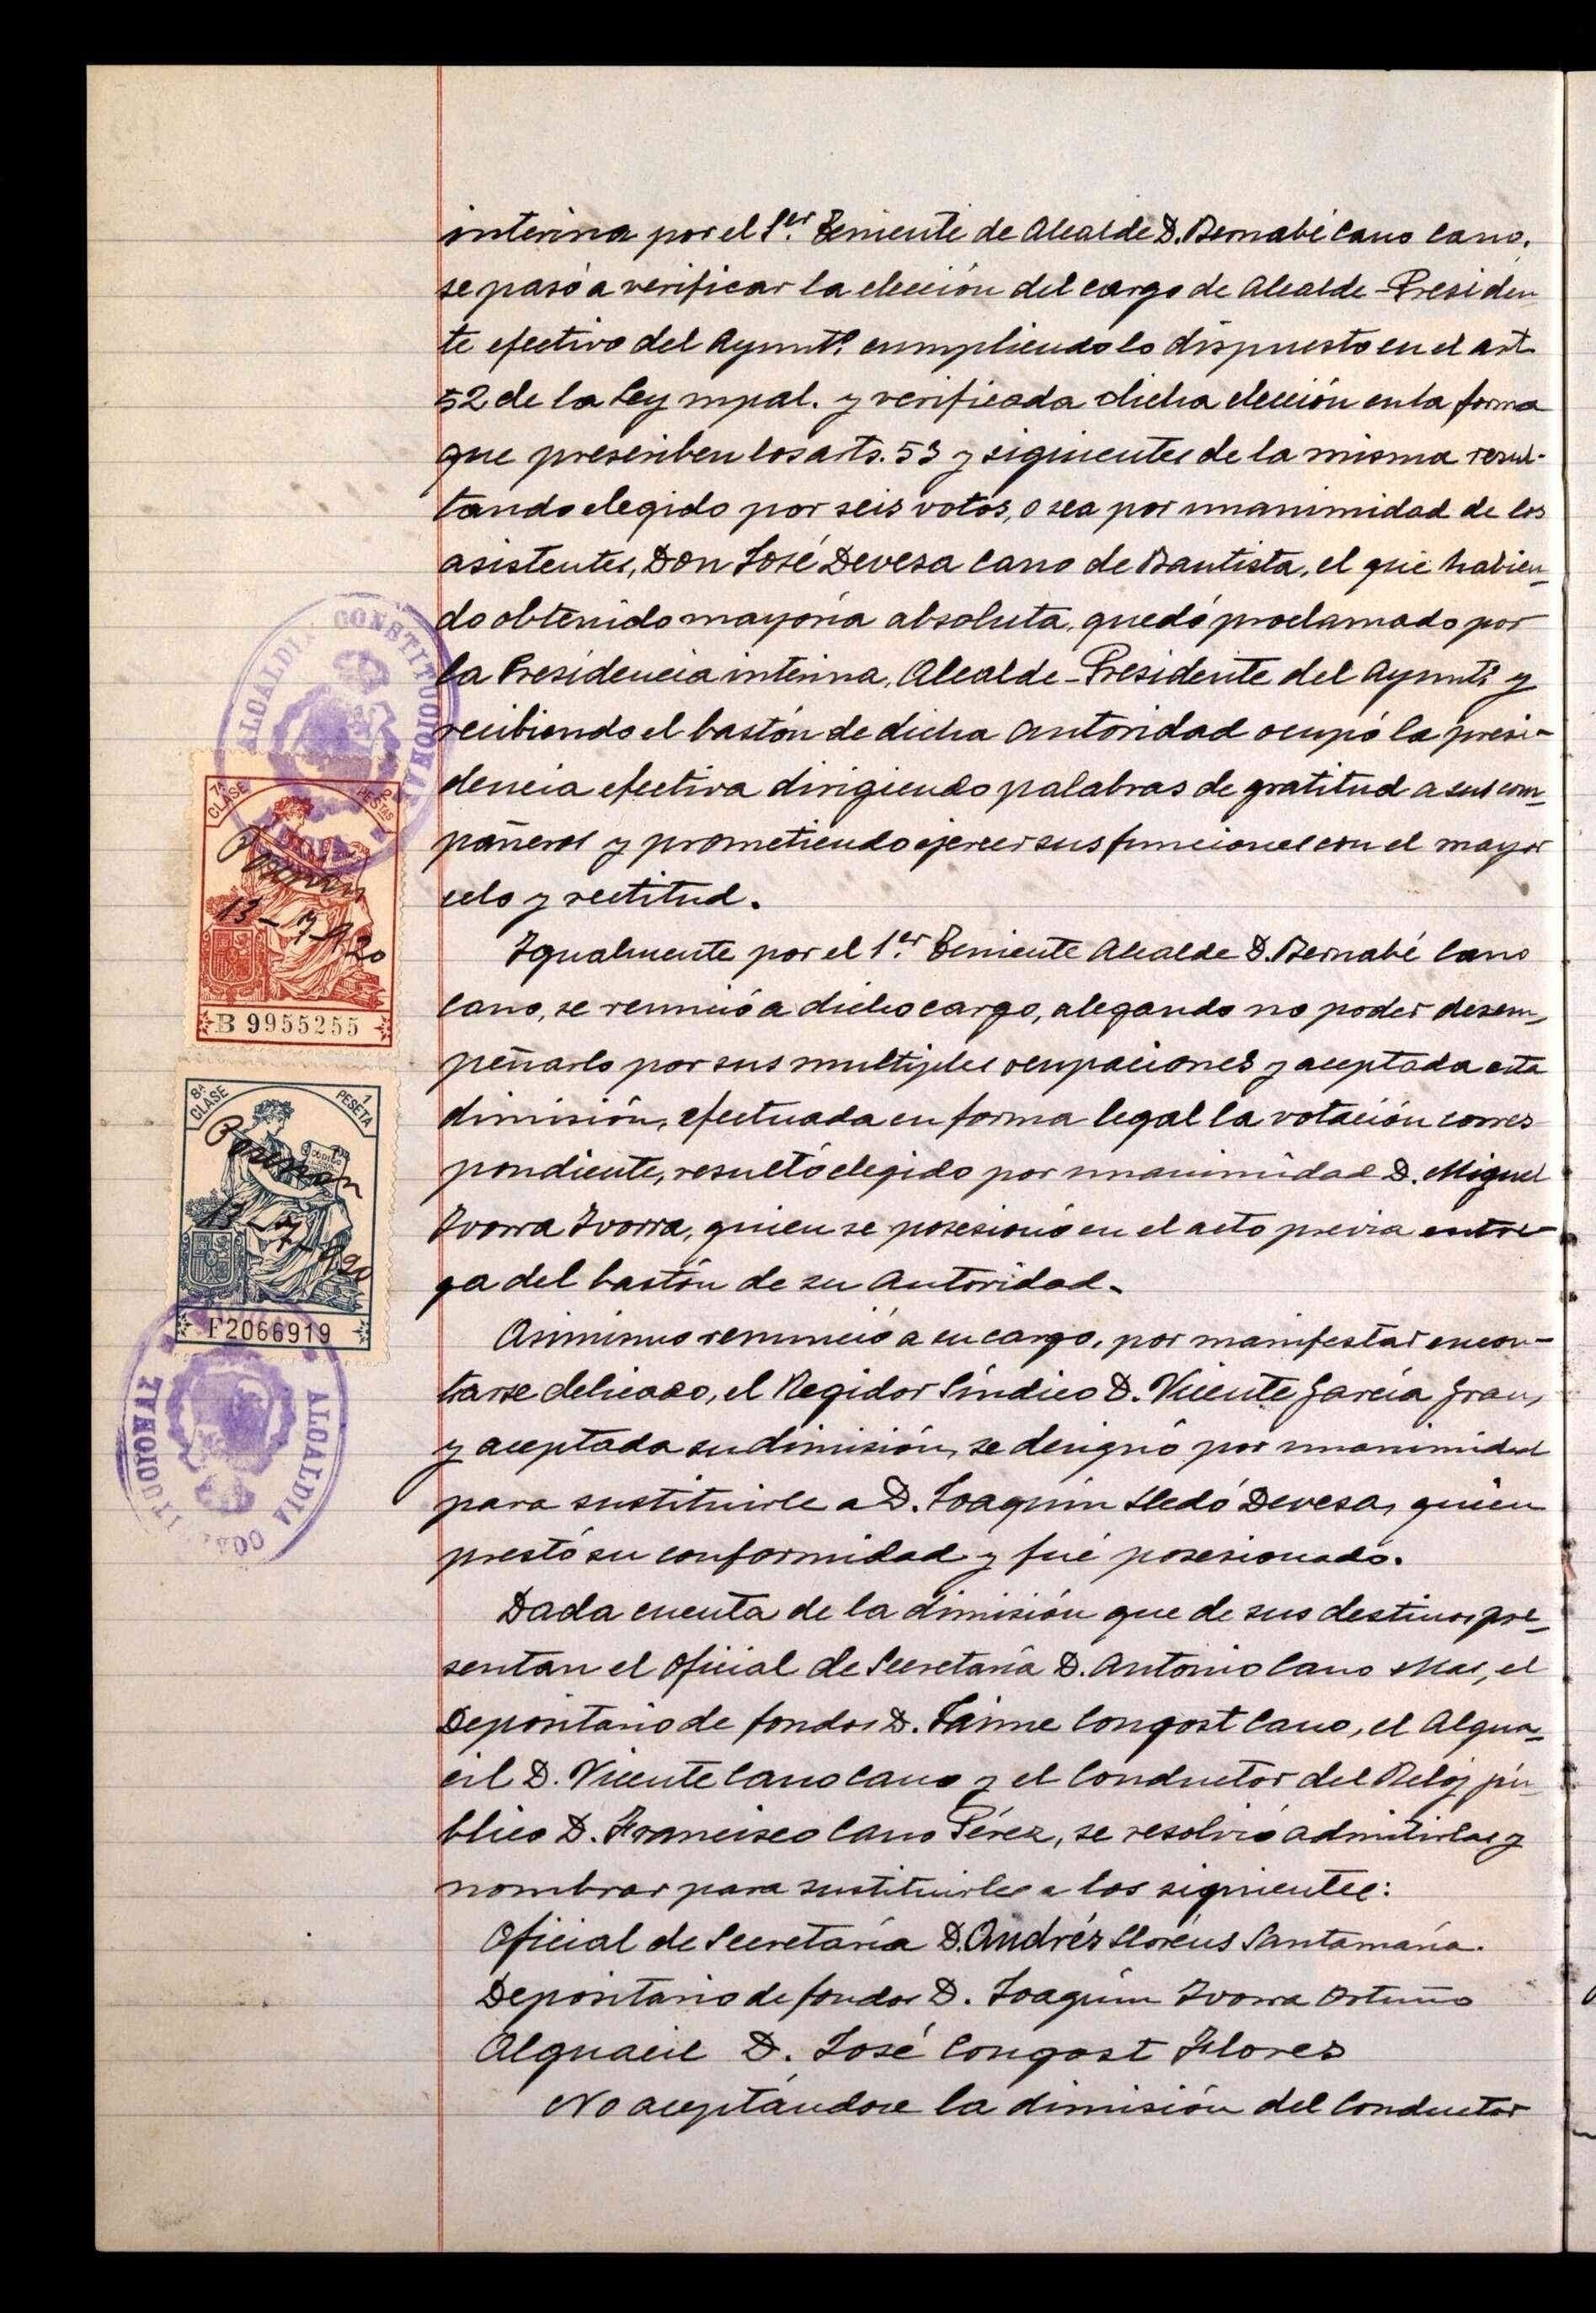 interina por el 1.er Teniente de Alcalde D. Bernabé Cano Cano,
se pasó a verificar la elección del cargo de Alcalde-Presiden
te efectivo del Ayuntº. cumpliendo lo dispuesto en el art
52 de la Ley mpal. y verificada dicha elección en la forma
que prescriben los arts. 53 y siguientes de la misma resul-
tando elegido por seis votos, o sea por unanimidad de los
asistentes, Don José Devesa Cano de Bautista, el que habien-
do obtenido mayoría absoluta, quedó proclamado por
la Presidencia interina, Alcalde-Presidente del Ayuntº. y
recibiendo el bastón de dicha Autoridad ocupó la presi-
dencia efectiva dirigiendo palabras de gratitud a sus com-
pañeros y prometiendo ejercer sus funciones con el mayor
celo y rectitud.
Igualmente por el 1.er Teniente Alcalde D. Bernabé Cano
Cano, se renunció a dicho cargo, alegando no poder desem-
peñarlo por sus multiples ocupaciones y aceptada esta
dimisión, efectuada en forma legal la votación corres
pondiente, resultó elegido por unanimidad D. Miguel
Ivorra Ivorra, quien se posesionó en el acto previa entre-
ga del bastón de su Autoridad.
Asimismo renunció a su cargo, por manifestar encon-
trarse delicado, el Regidor Síndico D. Vicente García Grau,
y aceptada su dimisión, se designó por unanimidad
para sustituirle a D. Joaquín Lledó Devesa, quien
prestó su conformidad y fué posesionado.
Dada cuenta de la dimisión que de sus destinos pre-
sentan el Oficial de Secretaría D. Antonio Cano Mas, el
Depositario de fondos D. Jaime Congost Cano, el Algua-
cil D. Vicente Cano Cano y el Conductor del Reloj pú-
blico D. Francisco Cano Pérez, se resolvió admitirlas y
nombrar para sustituirles a los siguientes:
Oficial de Secretaría D. Andrés Lloréns Santamaría.
Depositario de fondos D. Joaquín Ivorra Ortuño
Alguacil D. José Congost Flores
No aceptándose la dimisión del Conductor
ALCALDIA CONSTITUCIONAL
7ª CLASE
2 PESETAS
13-7-920
B 9955255
8ª CLASE
1 PESETA
13-7-920
F2066919
ALCALDIA